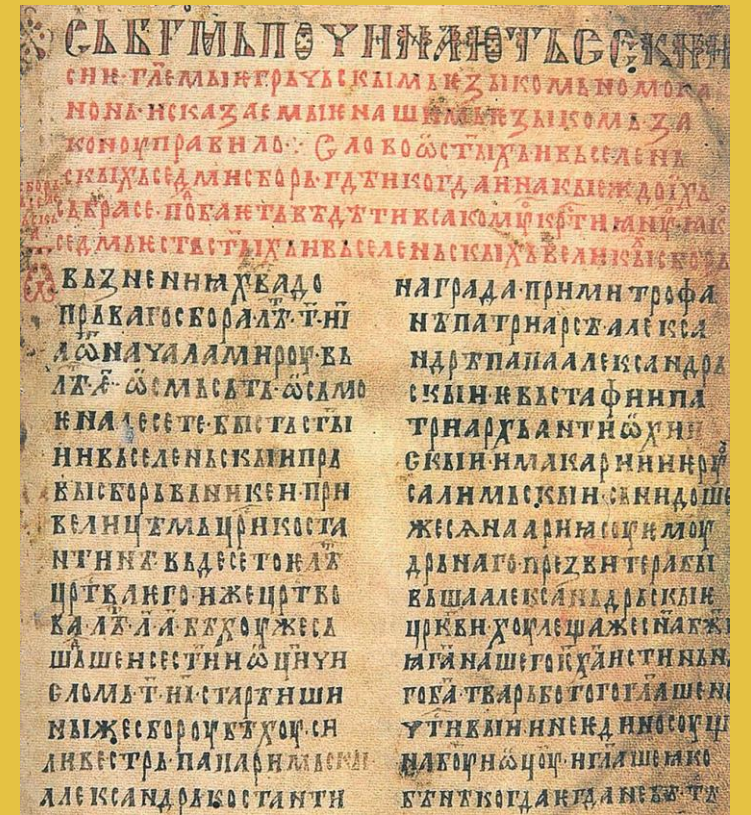 СЬ БГ҃МЬ ПОЧИНАЮТЬ СЕ КНИ
СИЕ ГЛ҃ЕМЫЕ ГРЬЧЬСКЫМЬ ЕЗЫКОМЬ НОМОКА
НОНЬ· ИСКАЗАЕМЫЕ НАШИМЬ ЕЗЫКОМЬ ЗА
КОНОУ ПРАВИЛО⁘ СЛОВО Ѡ СТ҃ЫХЬ И ВЬСЕЛЕНЬ
СКЫХЬ СЕДМИ СБОРЬ· ГДѢ И КОГДА И НА КЫЕЖДО ИХЬ
СЬБРАСЕ· ПОБАЕТЬ ВѢДѢТИ ВСАКОМОУ КРСТИꙖНИНОУ ꙖКО
СЕДМЬ ЕСТЬ СТ҃ЫХЬ И ВЬСЕЛЕНЬСКЫХЬ ВЕЛИКЫ СБОРЬ
ПРЬВАГО СБОРА ЛѢ Т҃ НІ҃
Ѡ НАЧАЛА МИРОУ· ВЬ
ЛѢ· ОСМЬ СЬТЬ· ѠСЬМО
ЕНАДЕСЕТЕ· БЫСТЬ СТ҃Ы
И И ВЬСЕЛЕНЬСКЫИ ПРЬ
ВЫ СБОРЬ ВЬ НИКЕИ· ПРИ
ВЕЛИЦѢМЬ ЦР҃И КОСТА
НТИНѢ ВЬ ДЕСЕТОЕ ЛѢ
ЦРТВА ЕГО· ИЖЕ ЦРТВО
ВА· ЛѢ· Л҃А· БѢХОУ ЖЕ СЬ
ШЬШЕИ СЕ СТИИ Ѡ҃ЦИ ЧИ
СЛОМЬ· Т҃ НІ҃· СТАРѢИШИ
НЫ ЖЕ СБОРОУ БѢХОУ· СИ
ЛИВЕСТРЬ ПАПА РИМЬСКЫ
АЛЕКСАНДРЬ КОСТАНТИ
НАГРАДА· ПРИ МИТРОФА
НѢ ПАТРИАРСѢ· АЛЕКСА
НДРѢ ПАПА АЛЕКСАНДРЬ
СКЫИ· ЕВЬСТАФИИ ПА
ТРИАРХЬ АНТИѠХИИ
СКЫИ· И МАКАРИИ ИЕРОУ
САЛИМЬСКЫИ· СЬНИДОШЕ
ЖЕ СЯ НА АРИꙖ СОУЕМОУ
ДРЬНАГО· ПРЕЗВИТЕРА БЫ
ВЬША АЛЕКСАНЬДРЬСКЫЕ
ЦРК҃ВИ· ХОУЛЕЩА ЖЕ
НАШЕГО ІС ХА ИСТИНЬН
ГО БА· ТВАРЬ БО ТОГО ГЛАШЕ
ЧТИВЫИ И НЕЕДИНОСОУЩ
НА БОУ И Ѡ҃ЦОУ· И ГЛ҃АШЕ ꙖКО
БѢ НѢКОГДА ЕГДА НЕ БѢ· ТѢ